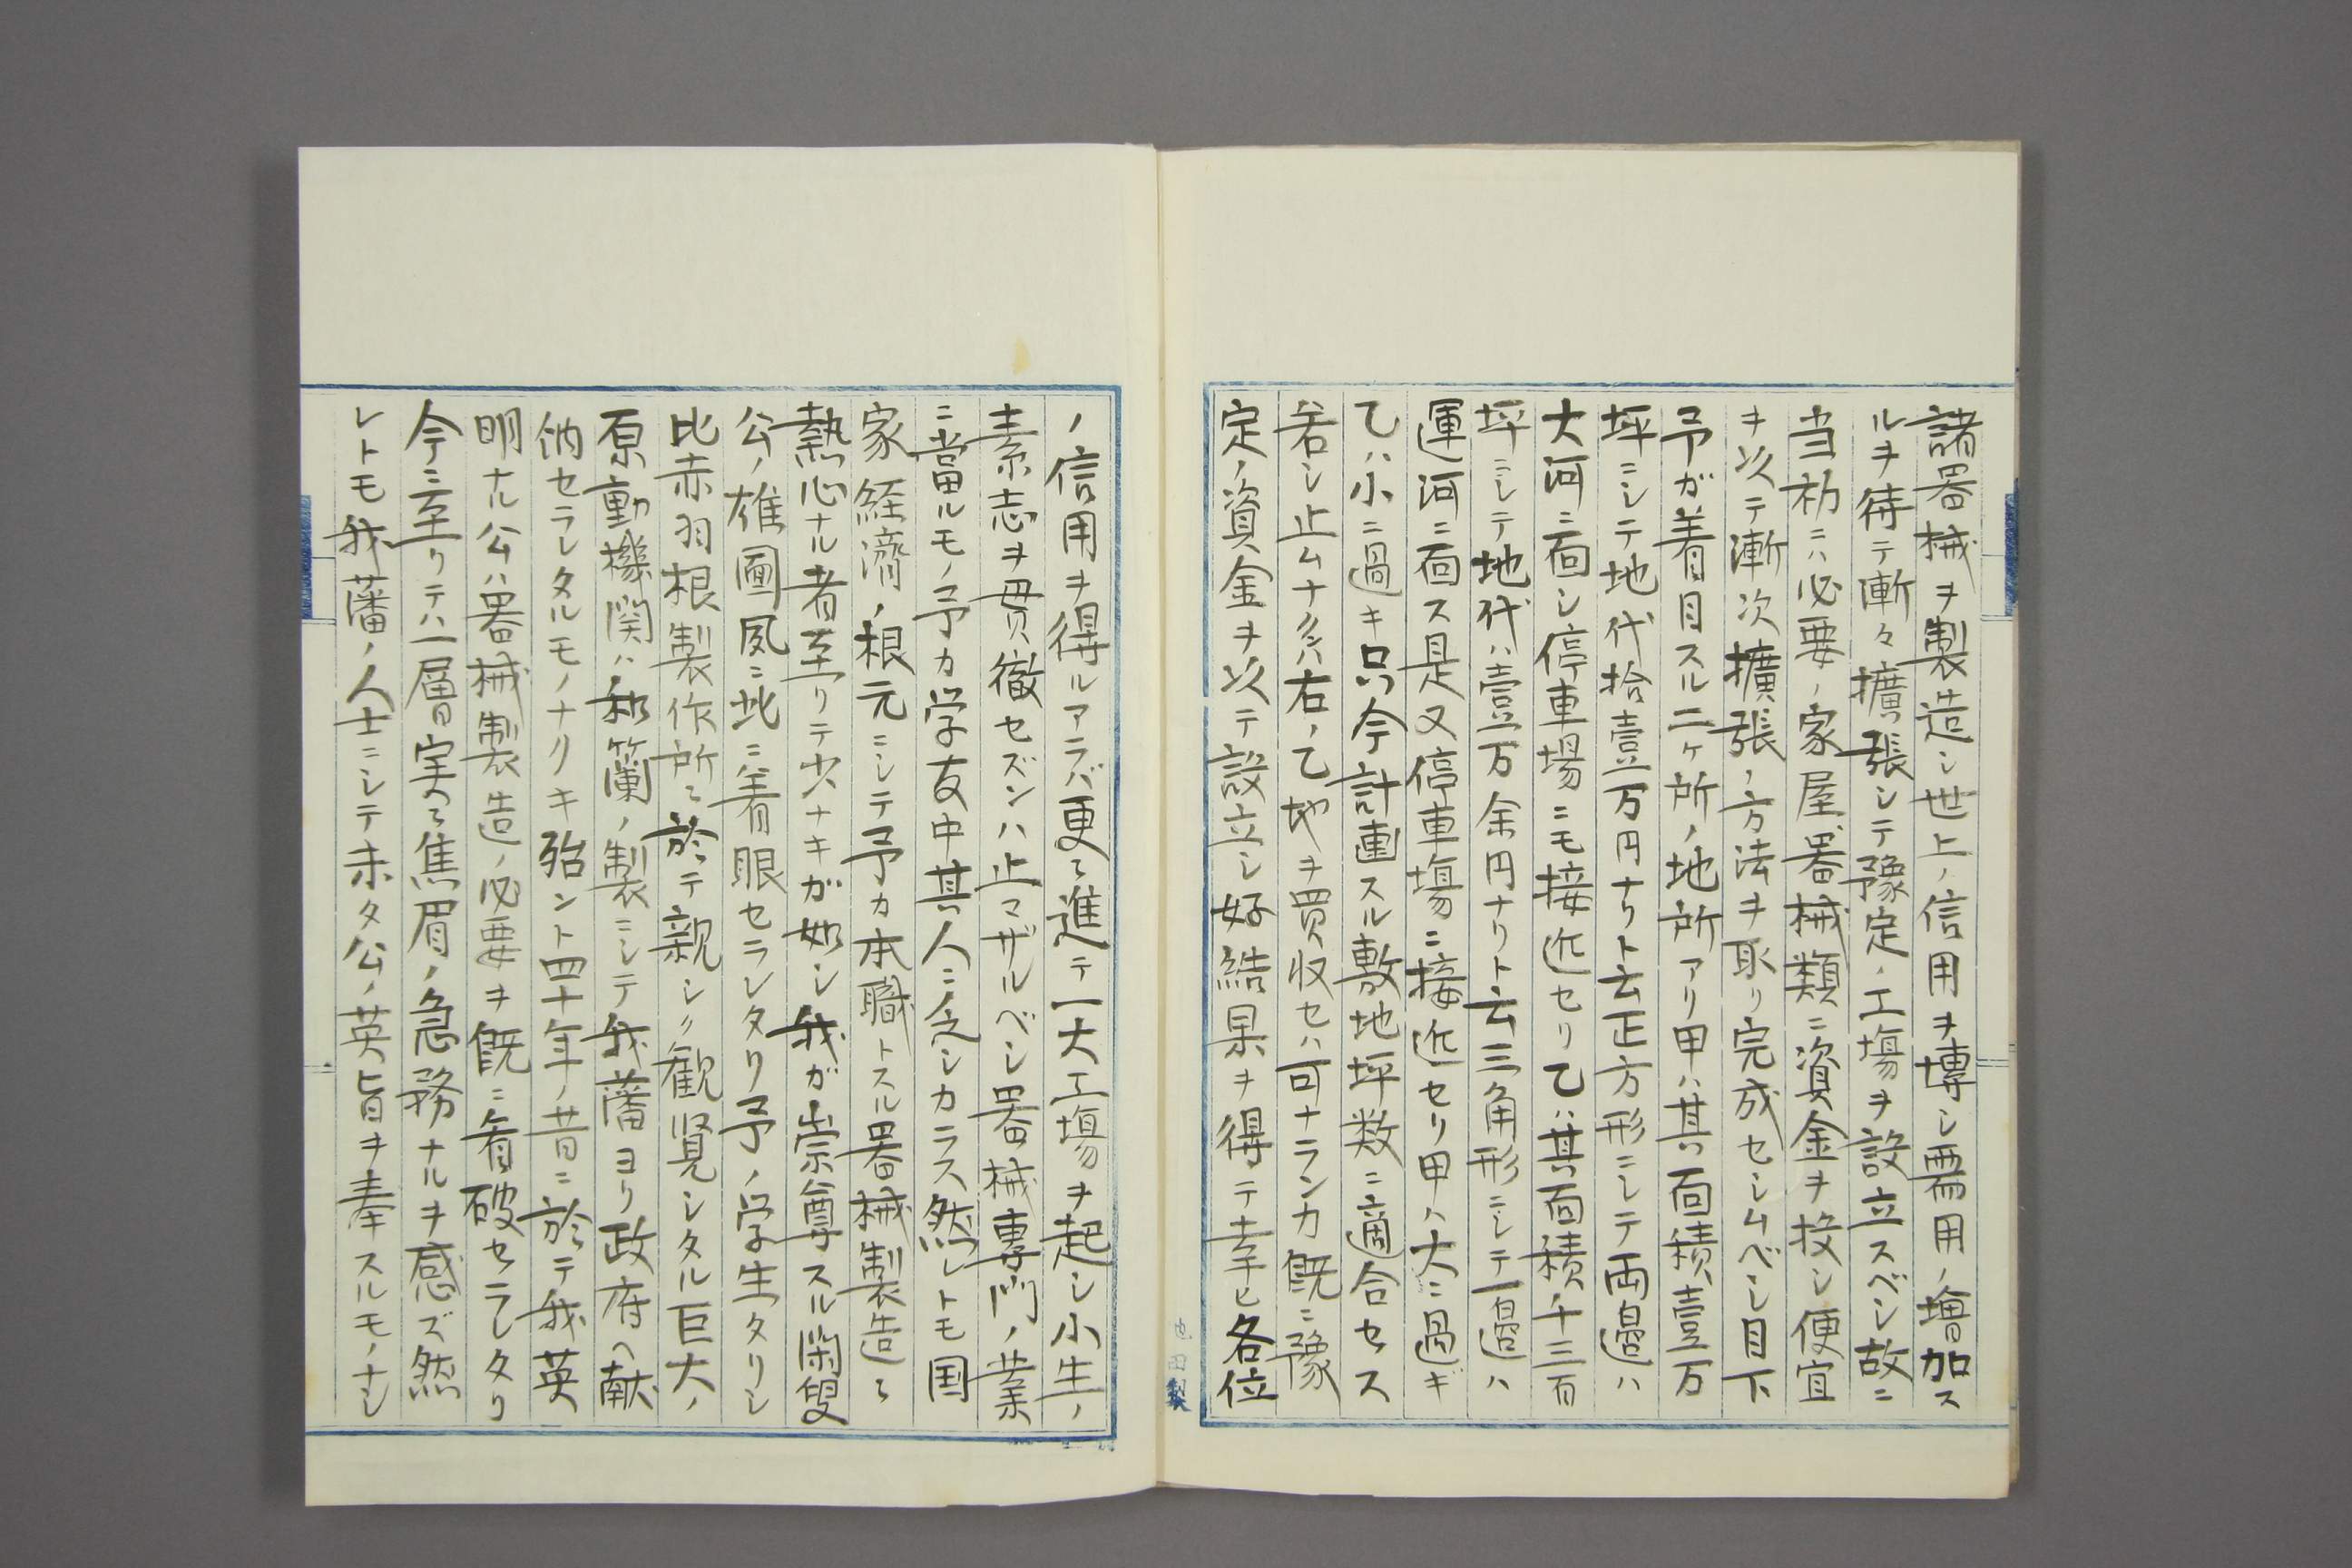 諸器械ヲ製造シ世上ノ信用ヲ博シ需用ノ増加ス
ルヲ待テ漸々擴張シテ豫定ノ工場ヲ設立スベシ故ニ
当初ニハ必要ノ家屋器械類ニ資金ヲ投シ便宜
ヲ以テ漸次擴張ノ方法ヲ取リ完成セシムベシ目下
予ガ着目スル二ヶ所ノ地所アリ甲ハ其面積壹万
坪ニシテ地代拾壹万円ナリト云正方形ニシテ両邉ハ
大河ニ面シ停車場ニモ接近セリ乙ハ其面積千三百
坪ニシテ地代ハ壹万余円ナリト云三角形ニシテ一邉ハ
運河ニ面ス是又停車場ニ接近セリ甲ハ大ニ過ギ
乙ハ小ニ過キ只今計畫スル敷地坪数ニ適合セス
若シ止ムナクンハ右ノ乙地ヲ買収セハ可ナランカ既ニ豫
定ノ資金ヲ以テ設立シ好結果ヲ得テ幸ヒ各位
ノ信用ヲ得ルアラバ更ニ進テ一大工場ヲ起シ小生ノ
素志ヲ貫徹セズンハ止マザルベシ器械専門ノ業
ニ當ルモノ予カ学友中其人ニ乏シカラス然レトモ国
家経済ノ根元ニシテ予カ本職トスル器械製造ニ
熱心ナル者至リテ少ナキガ如シ我ガ崇尊スル閑叟
公ノ雄圖夙ニ此ニ着眼セラレタリ予ノ学生タリシ
比赤羽根製作所ニ於テ親シク観覧シタル巨大ノ
原動機関ハ和蘭ノ製ニシテ我藩ヨリ政府ヘ献
納セラレタルモノナリキ殆ント四十年ノ昔ニ於テ我英
明ナル公ハ器械製造ノ必要ヲ既ニ看破セラレタリ
今ニ至リテハ一層実ニ焦眉ノ急務ナルヲ感ズ然
レトモ我藩ノ人士ニシテ未タ公ノ英旨ヲ奉スルモノナシ